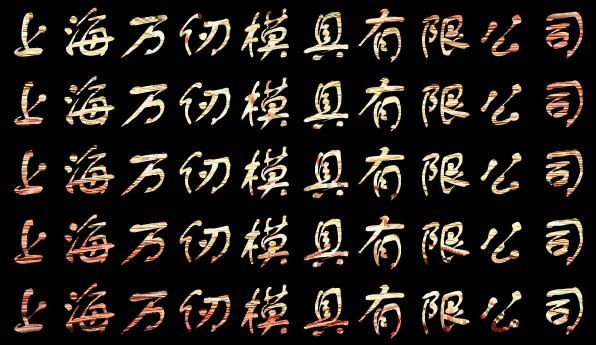 上海万仞模具有限公司
上海万仞模具有限公司
上海万仞模具有限公司
上海万仞模具有限公司
上海万仞模具有限公司